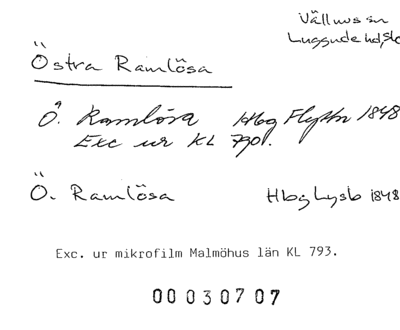 Vällnus sn
Luggude hd, sko
Östra Ramlösa
Ö. Ramlösa Hbg Flyttn 1848
Exc ur KL 790.
Ö. Ramlösa Hbg Lysb 1848
Exc. ur mikrofilm Malmöhus län KL 793.
00030707